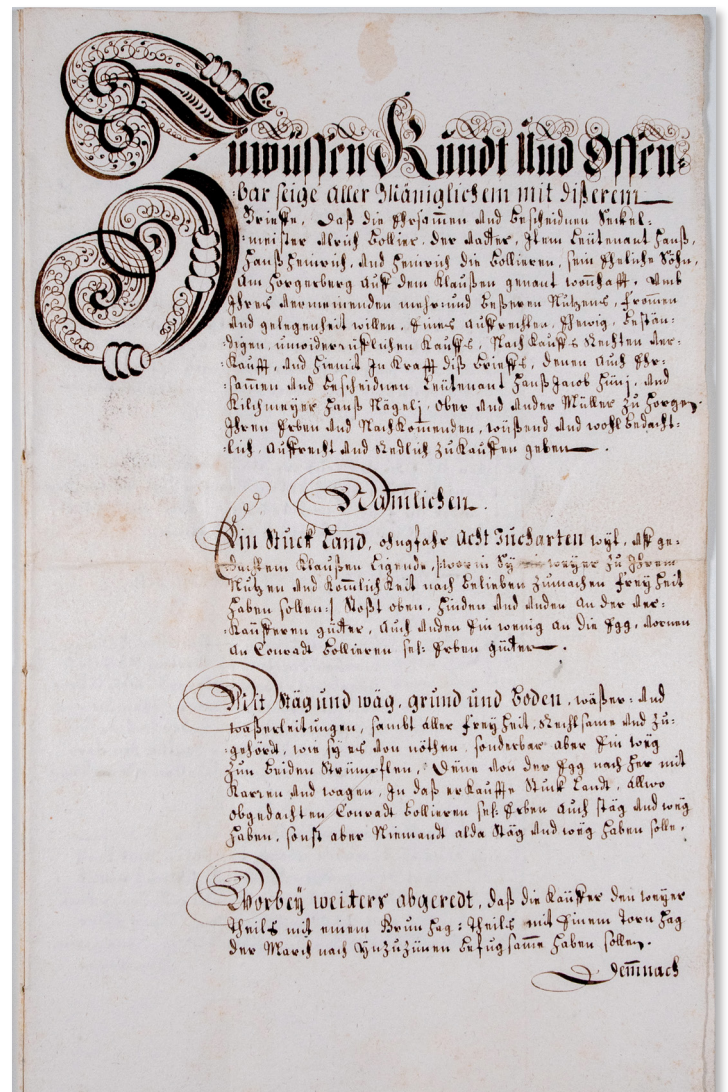 Zuwüssen Kundt und Offen-
-bar seige aller Mäniglichem mit dißerem
Brieffe, daß die Ehrsommen und bescheidnen Seckel-
-meister Ulrich Bollier, der Vadter, Item Leütenant Hanß,
Hanß Heinrich, und Heinrich die Bollieren, sein Eheliche Söhn,
Am Horgerberg auff dem Klaußen genant wonhafft, umb
Ihres vermeinenden mehr: und beßeren Nutzens, fromen
und gelegenheit willen, Eines auffrechten, Ehewig, bestän-
-digen, unwiderrüfflichen Kauffs, Nach Kauffs Rechten ver-
-kaufft, und hiemit In Krafft diß brieffs, denen auch Ehr-
-sammen und bescheidnen Leütenant Hanß Jacob Hünj, und
Kilchmeyer Hanß Nägelj, ober und under Müller zu Horgen,
Ihren Erben und Nachkomenden, wüßend und wohlbedächt-
-lich, auffrecht und Redlich zu Kauffen geben.
Namlichen.
Ein Stuck Land, ohngfahr Acht Jucharten wyt, uff ge-
-dachtem Klaußen ligende, |:worin Sy weyer zu Ihrem
Nutzen und Komlichkeit nach belieben zumachen freyheit
haben sollen:| Stoßt oben, hinden und unden an der ver-
-käufferen güeter, auch unden Ein wenig an die Egg, vornen
an Conradt Bollieren sel: Erben güeter.
Mit Stäg und wäg, grund und Boden, wäßer: und
waßerleitungen, sambt aller freyheit, Rechtsame und zu-
-gehördt, wie sy es von nöthen, sonderbar aber Ein weg
zun beiden Strümpflen, Dene von der Egg nach her mit
Karren und wagen, In daß erkauffte Stuck Landt, allwo
obgedachten Conradt Bollieren sel: Erben auch stäg und weg
haben, sonst aber Niemandt alda Stäg und weg haben solle.
Worbey weiters abgeredt, daß die Käuffer den weyer
Theils mit einem Grun hag: Theils mit Einem Torn hag
der March nach ynzuzünen befugsamme haben sollen.
Demnach